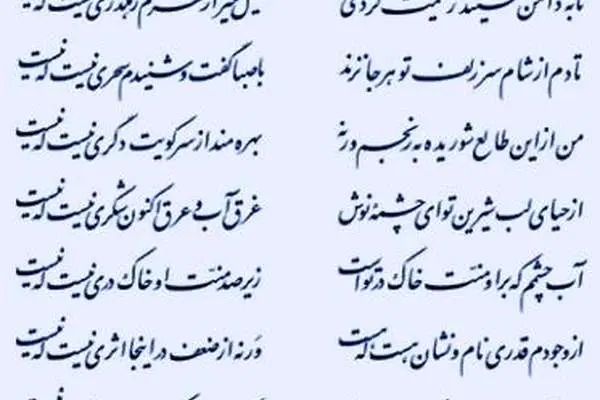 تا به دامن ننشیند ز نسیمت گردی سیل خیز از نظرم رهگذری نیست که نیست
تا دم از شام سر زلف تو هر جا نزند با صبا گفت و شنیدم سحری نیست که نیست
من از این طالع شوریده به رنجم ور نه بهره مند از سر کویت دگری نیست که نیست
از حیای لب شیرین تو ای چشمهٔ نوش غرق آب و عرق اکنون شکری نیست که نیست
آب چشمم که بر او منت خاک در توست زیر صد منت او خاک دری نیست که نیست
از وجودم قدری نام و نشان هست که هست ور نه از ضعف در اینجا اثری نیست که نیست